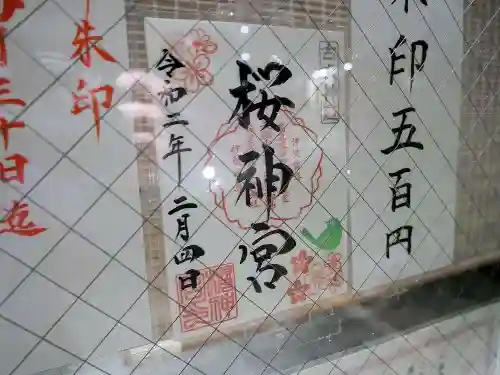 朱印五百円
桜神宮
令和二年二月四日
朱印
月三十日迄